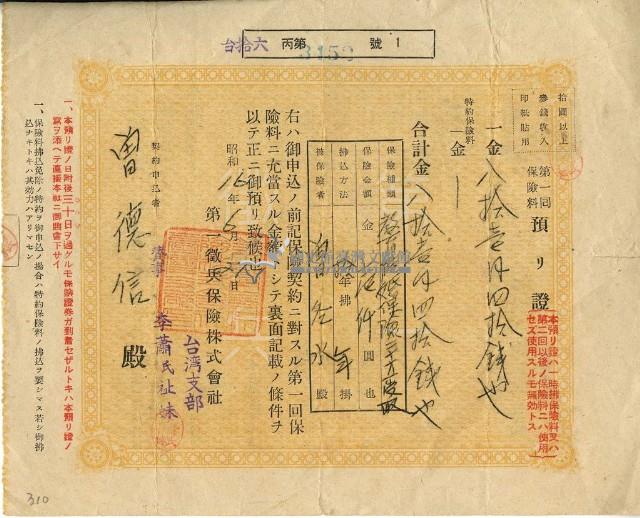 台拾六
丙第 3152 號 1
拾圓以上
參錢收入
印紙貼用
第一回保險料 預リ證
一金八拾壹円四拾錢也
特約保險料
一金
合計金八拾壹円四拾錢也
保險種類
保險金額 金 仟圓也
拂込方法 年拂 年掛
被保險者 水殿
右ハ御申込ノ前記保險契約ニ對スル第一回保
險料ニ充當スル金額トシテ裏面記載ノ條件ヲ
以テ正ニ御預リ致候也
昭和16年 月 日
第一徵兵保險株式會社
台湾支部
李蕭民祉妹
契約申込者
曾德信 殿
本預リ證ハ一時拂保險料又ハ
第二回以後ノ保險料ニハ使用
セズ使用スルモ無効トス
一、本預リ證ノ日附後三十日ヲ過グルモ保險證券ガ到着セザルトキハ本預リ證ノ
寫ヲ添ヘテ直接本社ニ御照會下サイ
一、保險料拂込免除ノ特約ヲ御申込ノ場合ハ特約保險料ノ拂込ヲ要シマス若シ御拂
込ナキトキハ其効力ハアリマセン
310